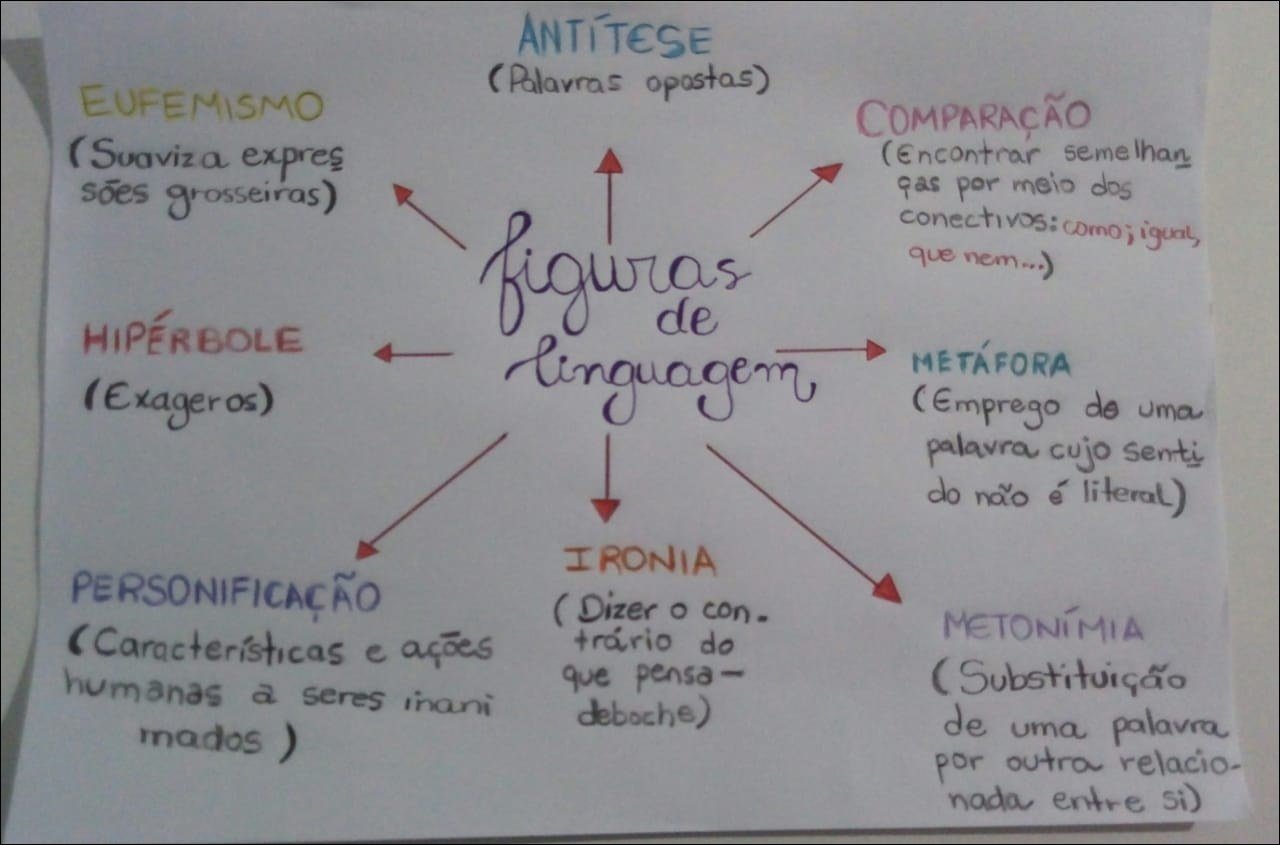 ANTÍTESE
(Palavras opostas)
EUFEMISMO
(Suaviza expres
sões grosseiras)
COMPARAÇÃO
(Encontrar semelhan
ças por meio dos
conectivos: como; igual,
que nem...)
figuras
de
linguagem
HIPÉRBOLE
(Exageros)
METÁFORA
(Emprego de uma
palavra cujo senti
do não é literal)
PERSONIFICAÇÃO
(Características e ações
humanas a seres inani
mados)
IRONIA
(Dizer o con-
trário do
que pensa-
deboche)
METONÍMIA
(Substituição
de uma palavra
por outra relacio-
nada entre si)